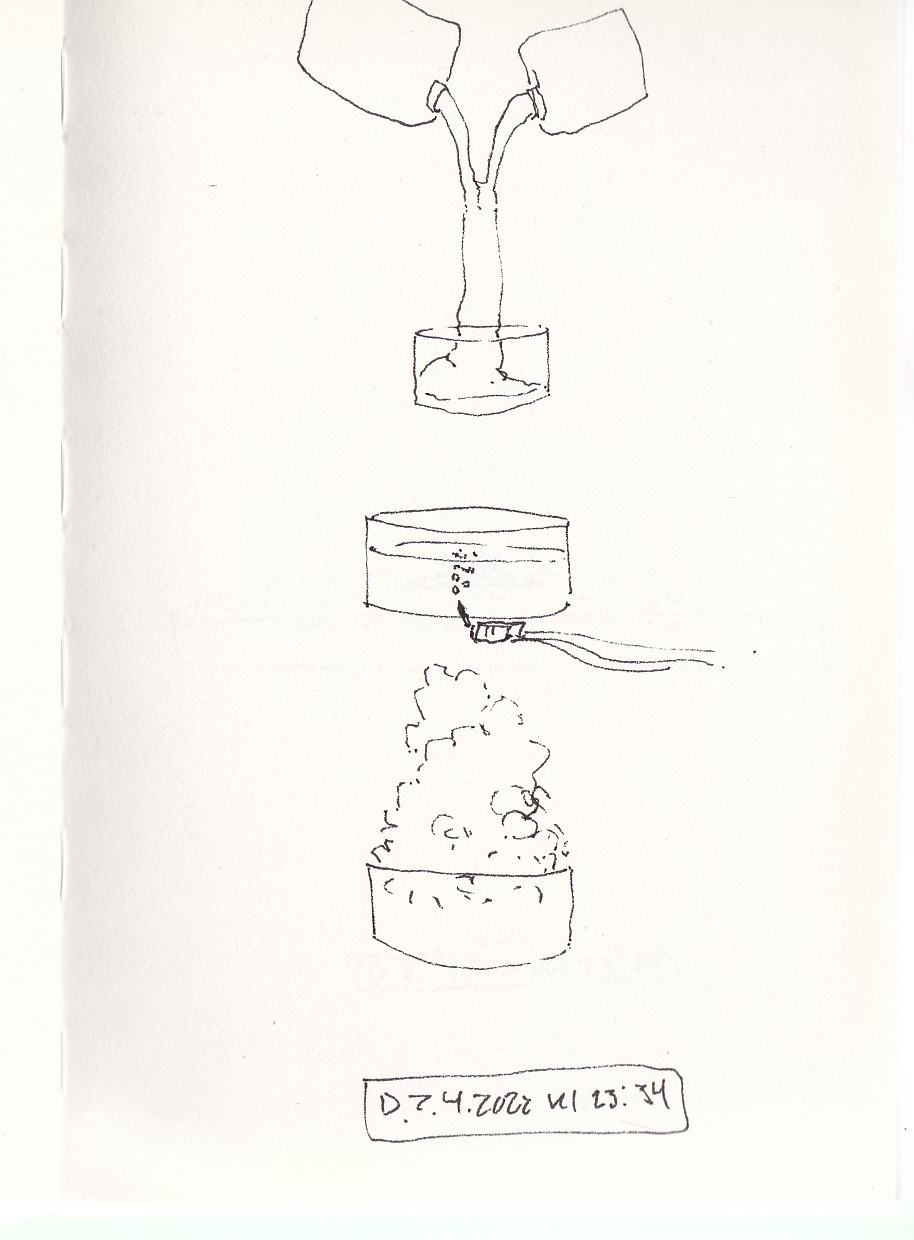 D. 7.4.2022 kl 23:34